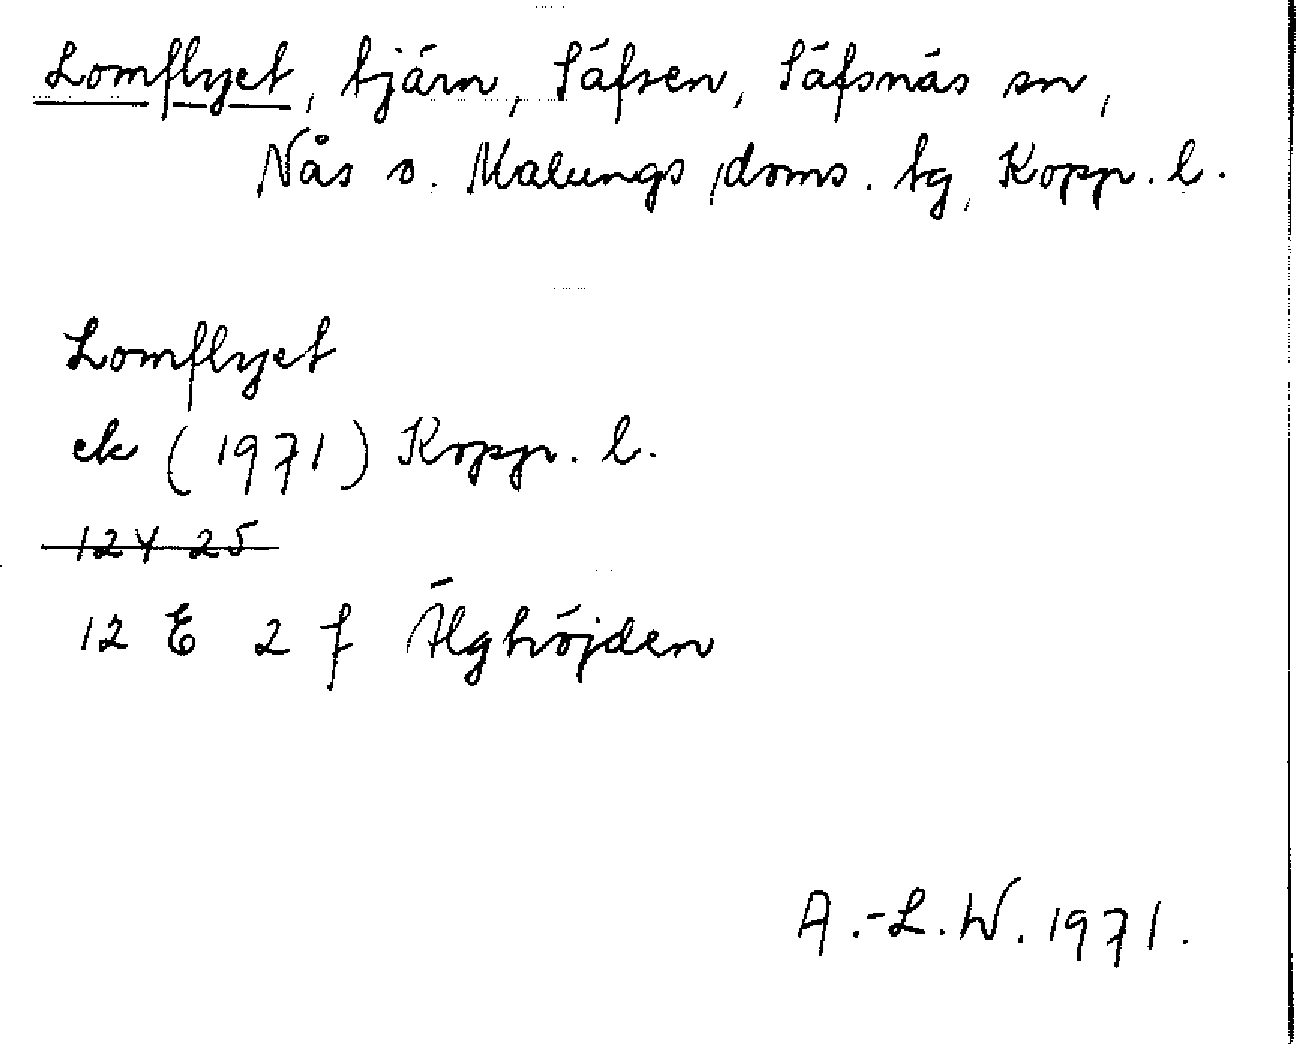 Lomflyet, tjärn, Säfsen, Säfsnäs sn,
Nås o. Malungs doms. tg, Kopp. l.
Lomflyet
ek (1971) Kopp. l.
12Y 25
12 E 2 f Älghöjden
A.-L.W. 1971.